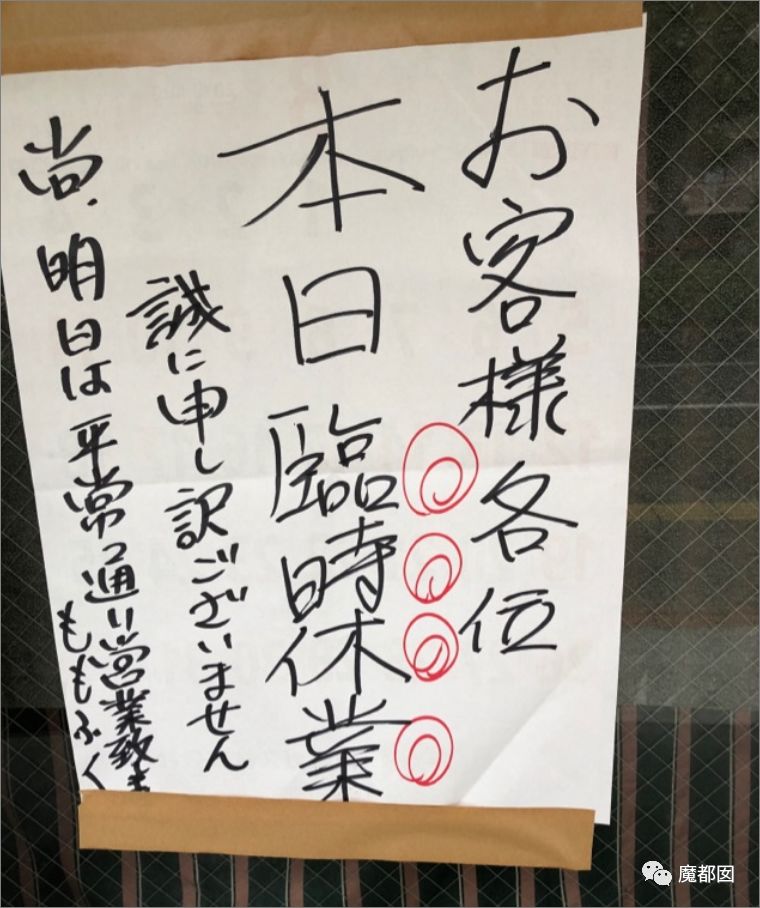 お客様各位
本日臨時休業
誠に申し訳ございません
尚、明日は平常通り営業致ま
ももふく
魔都囡